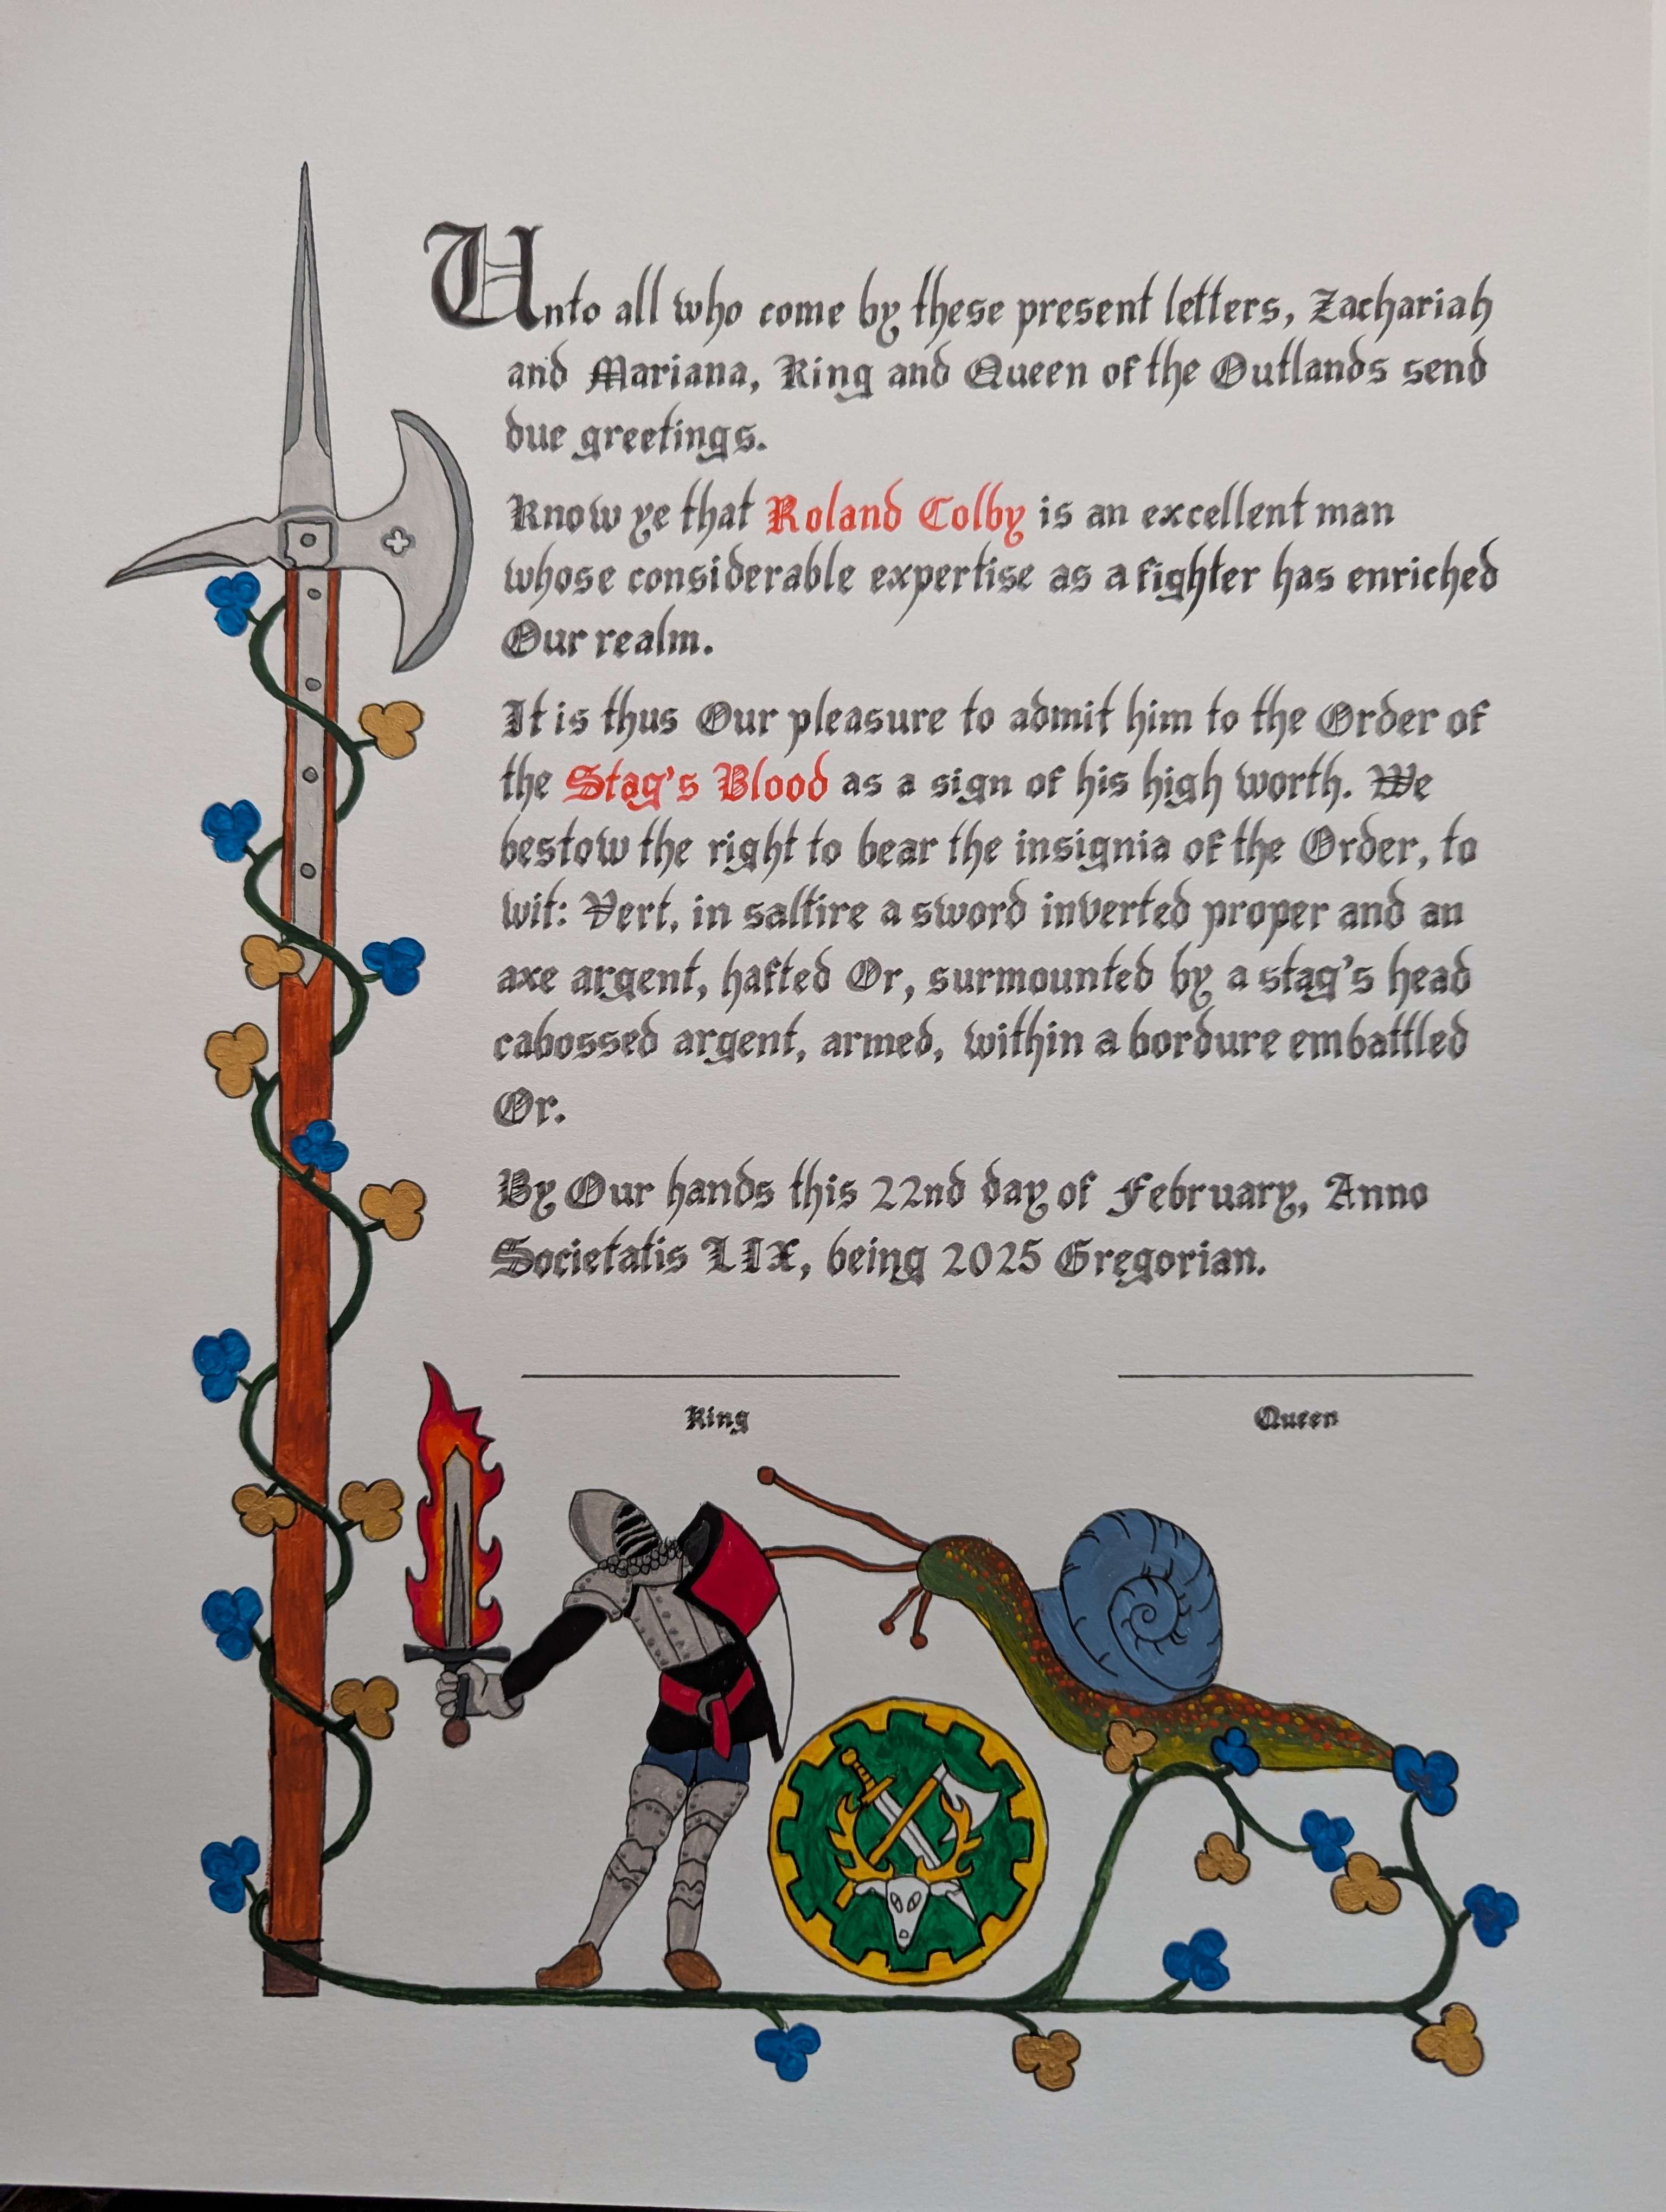 Unto all who come by these present letters, Zachariah
and Mariana, King and Queen of the Outlands send
due greetings.
Know ye that Roland Colby is an excellent man
whose considerable expertise as a fighter has enriched
Our realm.
It is thus Our pleasure to admit him to the Order of
the Stag's Blood as a sign of his high worth. We
bestow the right to bear the insignia of the Order, to
wit: Vert, in saltire a sword inverted proper and an
axe argent, hafted Or, surmounted by a stag's head
cabossed argent, armed, within a bordure embattled
Or.
By Our hands this 22nd day of February, Anno
Societatis LIX, being 2025 Gregorian.
King Queen